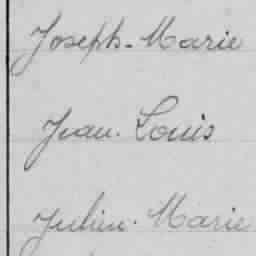 Joseph-Marie
Jean-Louis
Julien-Marie